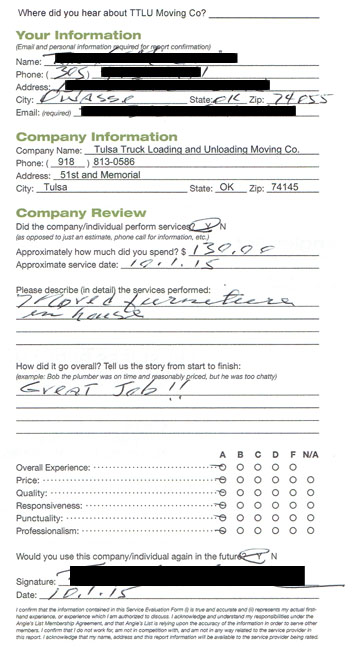 Where did you hear about TTLU Moving Co?
Your Information
(Email and personal information required for report confirmation)
Name:
Phone: (305)
Address:
City: Owasso State: OK Zip: 74055
Email: (required)
Company Information
Company Name: Tulsa Truck Loading and Unloading Moving Co.
Phone: ( 918 ) 813-0586
Address: 51st and Memorial
City: Tulsa State: OK Zip: 74145
Company Review
Did the company/individual perform services? Y N
(as opposed to just an estimate, phone call for information, etc.)
Approximately how much did you spend? $ 130.00
Approximate service date: 10.1.15
Please describe (in detail) the services performed:
Moved furniture
in house
How did it go overall? Tell us the story from start to finish:
(example: Bob the plumber was on time and reasonably priced, but he was too chatty)
Great Job!!
A B C D F N/A
Overall Experience:
Price:
Quality:
Responsiveness:
Punctuality:
Professionalism:
Would you use this company/individual again in the future? Y N
Signature:
Date: 10.1.15
I confirm that the information contained in this Service Evaluation Form (i) is true and accurate and (ii) represents my actual first-
hand experience, or experience which I am authorized to discuss. I acknowledge and understand my responsibilities under the
Angie's List Membership Agreement, and that Angie's List is relying upon the accuracy of the information in order to serve other
members. I confirm that I do not work for, am not in competition with, and am not in any way related to the service provider in
this report. I acknowledge that my name, address and this report information will be available to the service provider being rated.